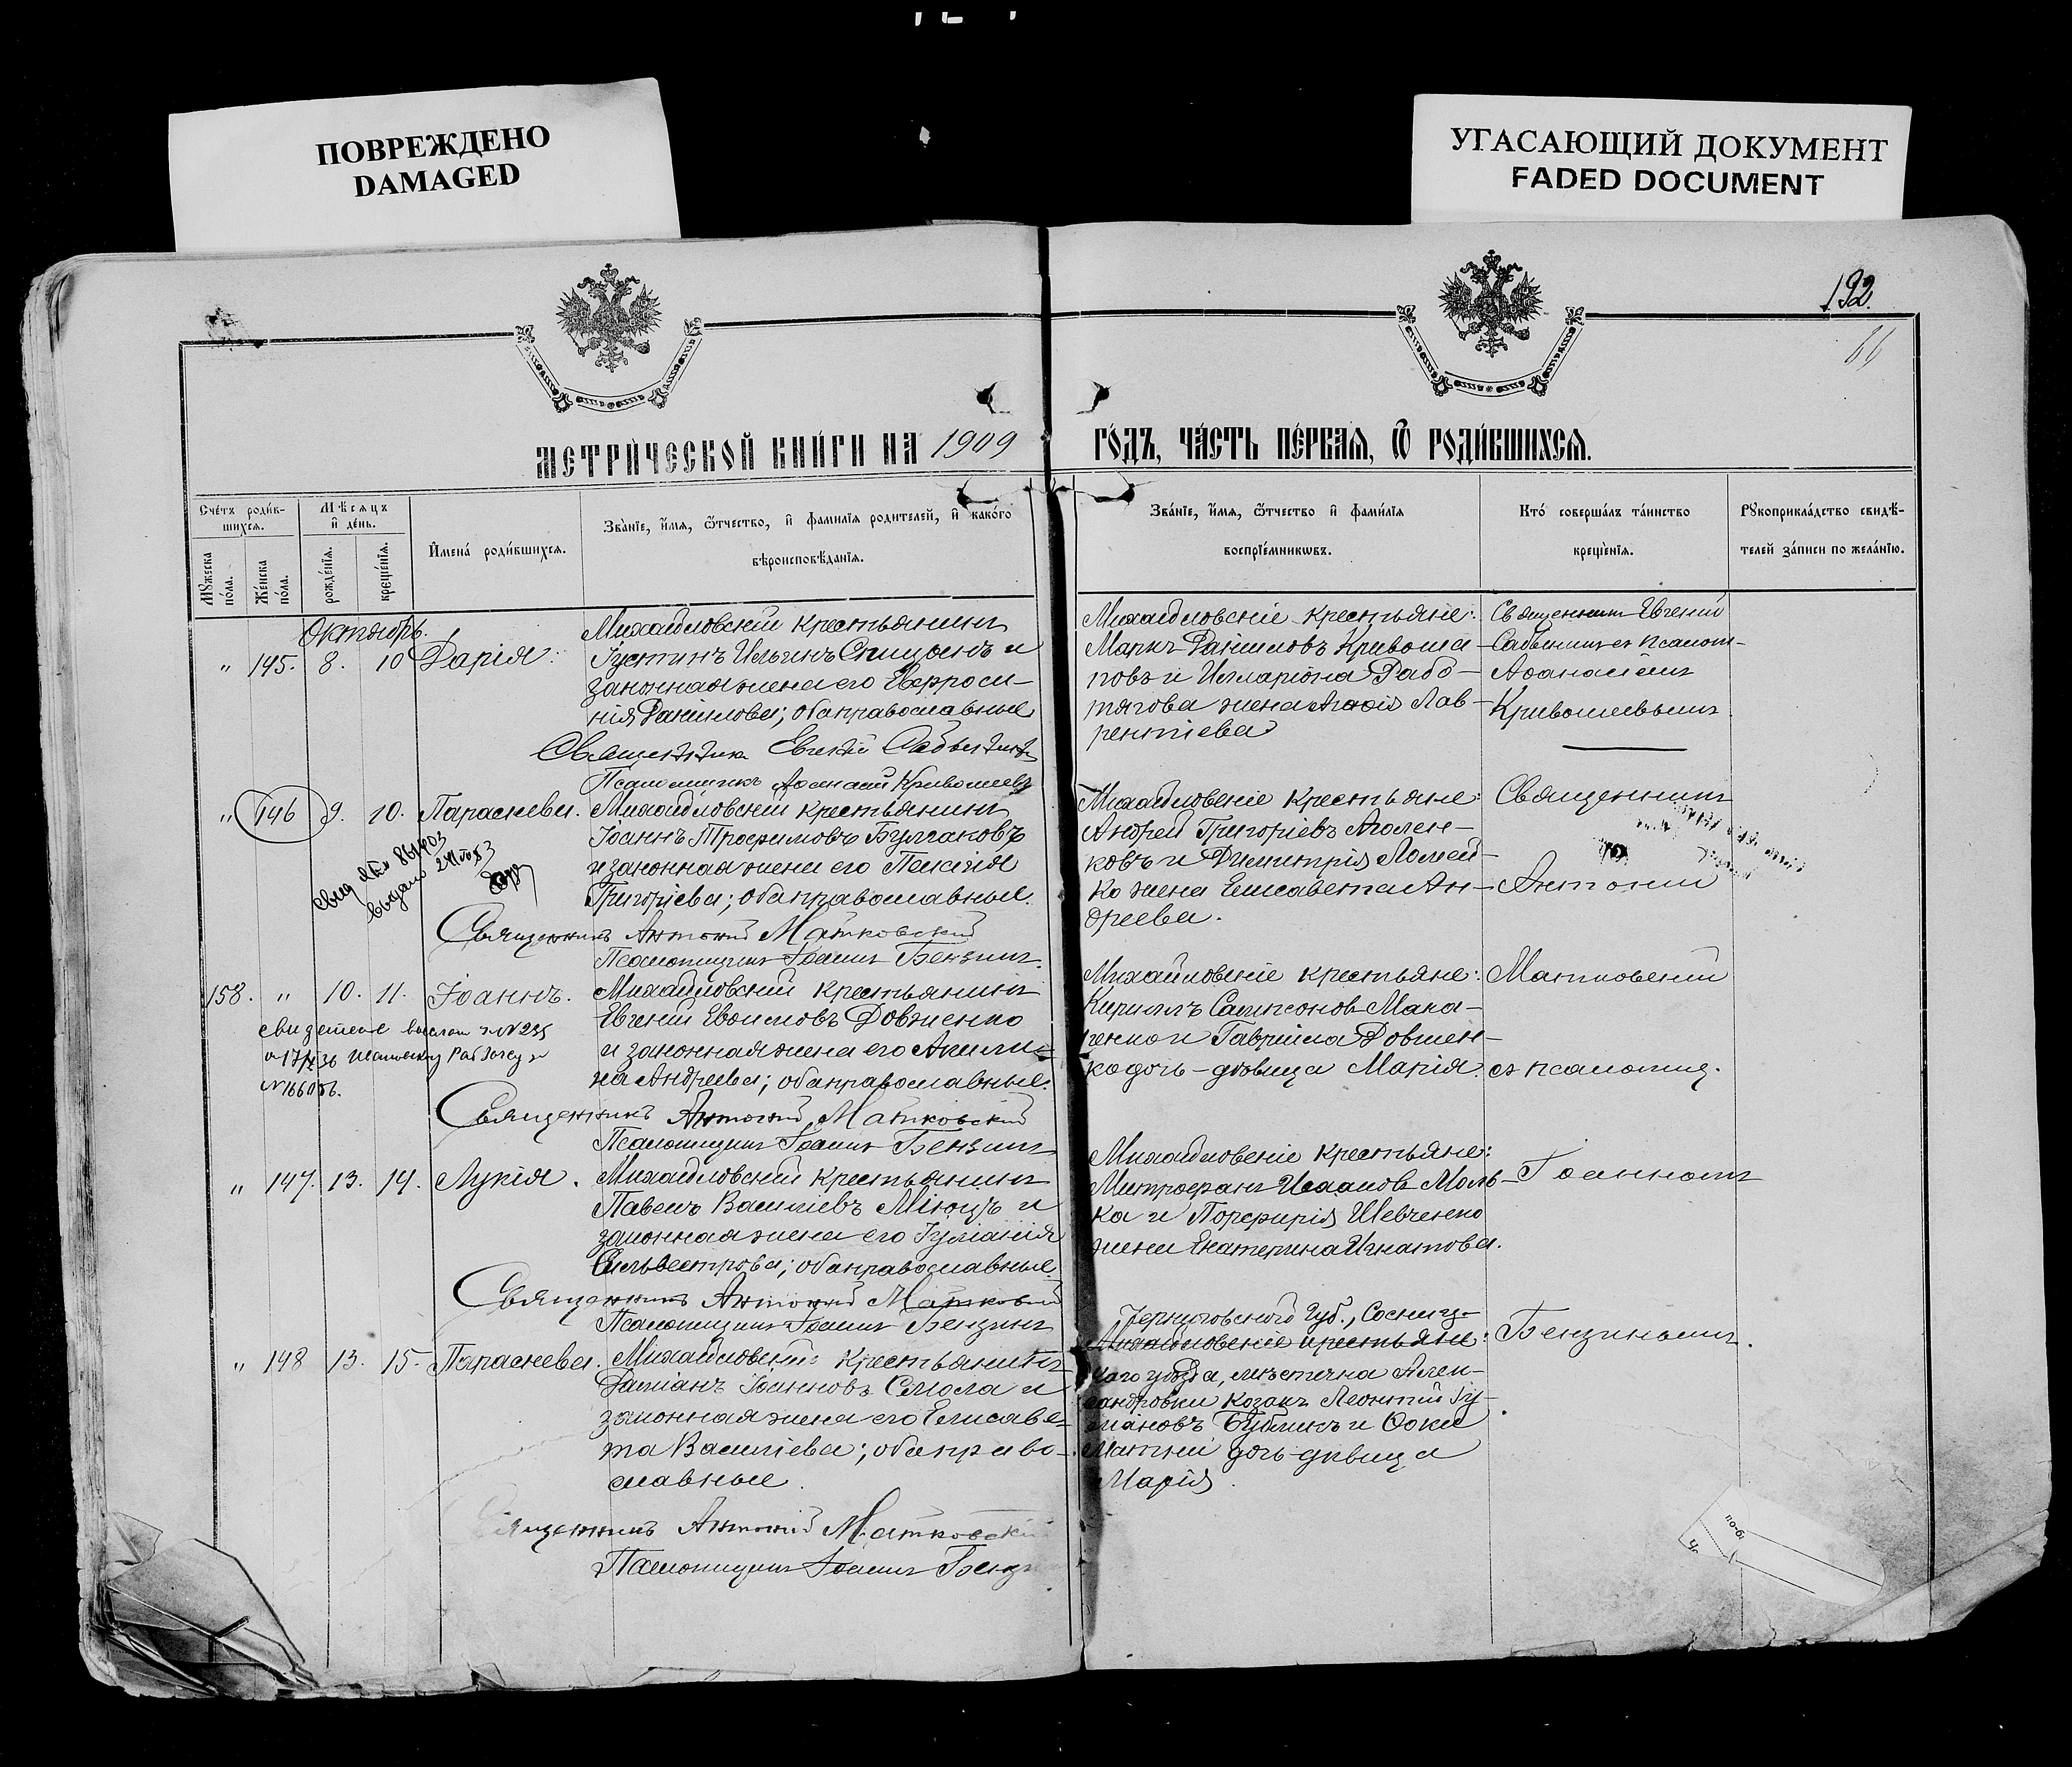 ПОВРЕЖДЕНО
DAMAGED
УГАСАЮЩИЙ ДОКУМЕНТ
FADED DOCUMENT
192.
МЕТРИЧЕСКОЙ КНИГИ НА 1909
ГОДЪ, ЧАСТЬ ПЕРВАЯ, Ѿ РОДИВШИХСЯ.
Счетъ родив-
шихся.
Мужеска пола.
Женска пола.
Мѣсяцъ
и день.
рожденія.
крещенія.
Имена родившихся.
Званіе, имя, ѿчество, и фамилія родителей, и какого
вѣроисповѣданія.
Званіе, имя, ѿчество и фамилія
воспріемниковъ.
Кто совершалъ таинство
крещенія.
Рукоприкладство свидѣ-
телей записи по желанію.
Октябрь.
" 145. 8. 10 Дарія.
Михайловскій крестьянинъ
Іустинъ Ильинъ Спицынъ и
законная жена его Евфроси-
нія Данилова; оба православные
Священникъ Евгеній
Псаломщикъ Аѳанасій Кривошеевъ
Михайловскіе крестьяне:
Маркъ Даниловъ Кривоша-
повъ и Илларіона Рабо-
тягова жена Агафія Лав-
рентіева
Священникъ Евгеній
съ псалом-
Аѳанасіемъ
Кривошеевымъ
" 146 9. 10. Параскева.
Михайловскій крестьянинъ
Іоаннъ Трофимовъ Булгаковъ
и законная жена его
Григоріева; оба православные.
Священникъ Антоній Матковскій
Псаломщикъ Іоаннъ Бензинъ.
выдано
Михайловскіе крестьяне:
Андрей Григоріевъ
ковъ и Димитрія Ломей-
ко жена Елисавета Ан-
дреева.
Священникъ
Антоній
158. " 10. 11. Іоаннъ.
Михайловскій крестьянинъ
Евгеній Евѳимовъ Довженко
и законная жена его Акили-
на Андреева; оба православные.
Священникъ Антоній Матковскій
Псаломщикъ Іоаннъ Бензинъ
Михайловскіе крестьяне:
Кириллъ Сампсоновъ Мака-
ренко и Гавріила Довжен-
ко дочь-дѣвица Марія.
Матковскій
съ псаломщ.
" 147. 13. 14. Лукія.
Михайловскій крестьянинъ
Павелъ Василіевъ и
законная жена его Іуліанія
Сильвестрова; оба православные.
Священникъ Антоній Матковскій
Псаломщикъ Іоаннъ Бензинъ
Михайловскіе крестьяне:
Митрофанъ Исааковъ Моль-
ка и Порфирія Шевченко
жена Екатерина Игнатова.
Іоанномъ
" 148 13. 15. Параскева.
Михайловскій крестьянинъ
Даміанъ Іоанновъ Смола и
законная жена его Елисаве-
та Василіева; оба право-
славные.
Священникъ Антоній Матковскій
Псаломщикъ Іоаннъ
Черниговской губ., Сосниц-
Михайловскіе крестьяне:
каго уѣзда, мѣстечка Алек-
сандровки козакъ Леонтій Іу-
ліановъ Бубликъ и Ѳоки
дочь-дѣвица
Марія.
Бензинымъ.